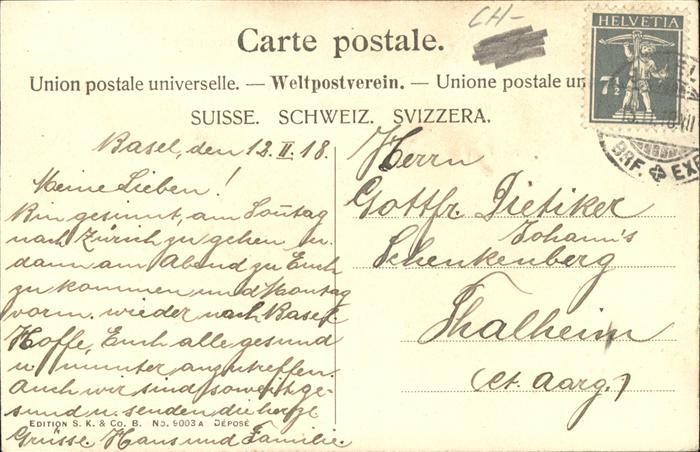 CH-
Carte postale.
HELVETIA
7½
Union postale universelle. — Weltpostverein. — Unione postale un
SUISSE. SCHWEIZ. SVIZZERA.
BRF. EX
Basel, den 12. II. 18.
Meine Lieben!
Bin gesinnt, am Soñtag
nach Zürich zu gehen u.
dann am Abend zu Euch
zu kommen und Montag
vorm. wieder nach Basel.
Hoffe, Euch alle gesund
u. munter anzutreffen.
Auch wir sind soweit ge-
sund u. senden die herzl.
Grüsse. Hans und Familie.
EDITION S. K. & Co. B. No. 9003 A DÉPOSÉ
Herrn
Gottfr. Dietiker
Johann's
Schenkenberg
Thalheim
(Ct. Aarg.)